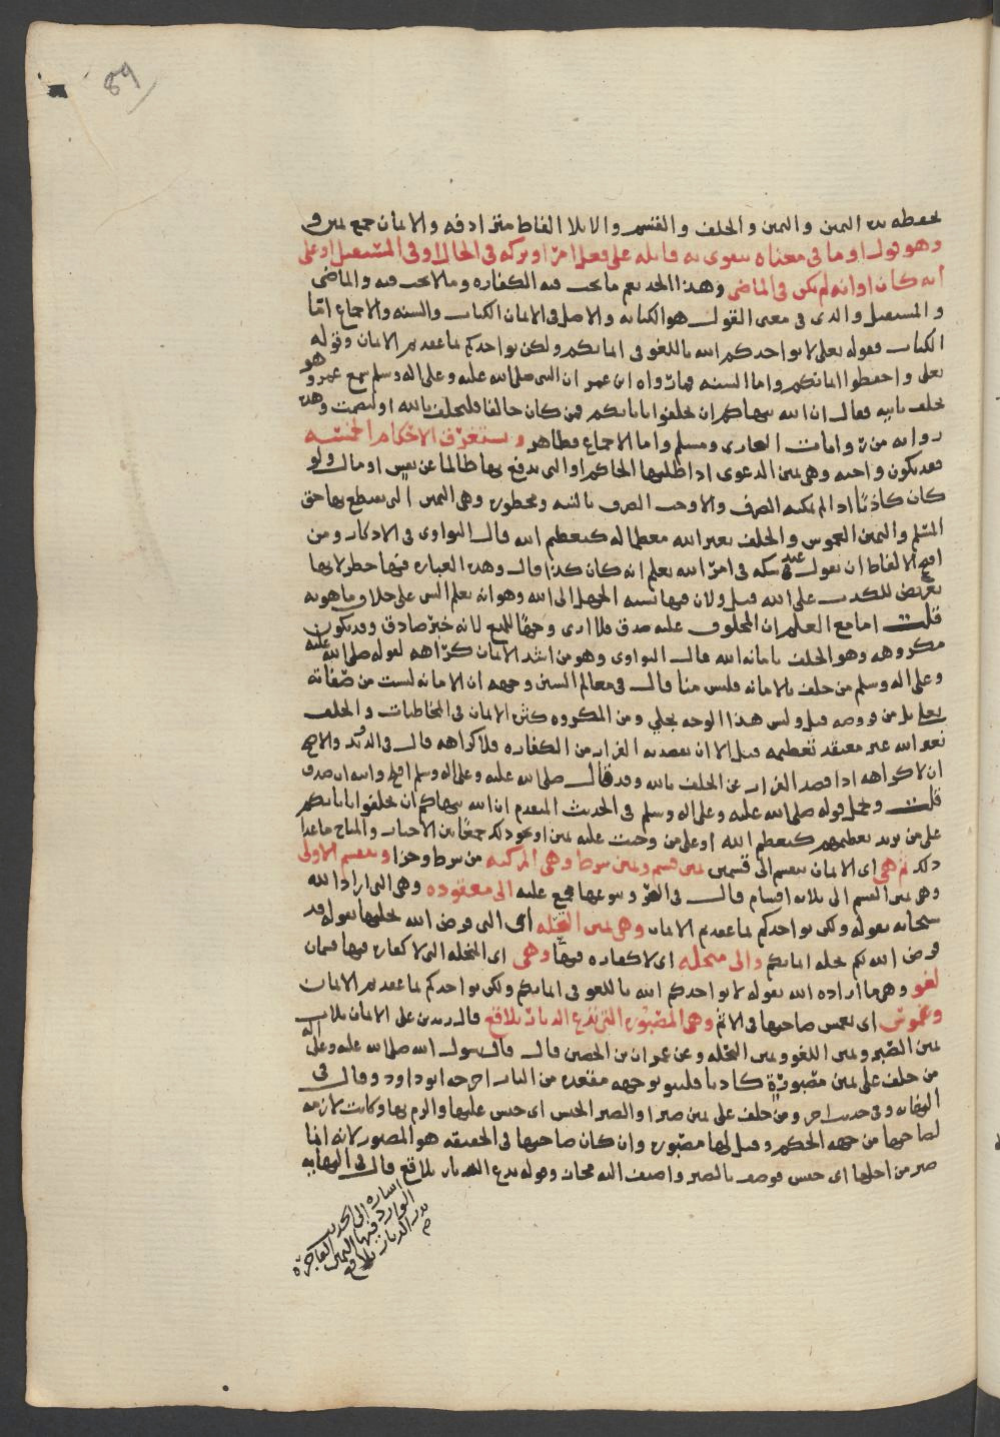 89
يحفظه به اليمين واليمين والحلف والقسم والايلا الفاظ مترادفه والايمان جمع يمين و
وهو قول او ما في معناه يتقوى به قايله على فعل امر او تركه في الحال او في المستقبل او على
انه كان او انه لم يكن في الماضي وهذا الحد يعم ما تجب فيه الكفاره وما لا تجب فيه والماضي
والمستقبل والذي في معنى القول هو الكتابه والاصل في الايمان الكتاب والسنه والاجماع امّا
الكتاب فقوله تعلى لا يواخذكم الله باللغو في ايمانكم ولكن يواخذكم بما عقدتم الايمان وقوله
تعلى واحفظوا ايمانكم واما السنه فما رواه ابن عمر ان النبي صلى الله عليه وعلى اله وسلم سمع عمر وهو
يحلف بابيه فقال ان الله ينهاكم ان تحلفوا بابايكم فمن كان حالفا فليحلف بالله او ليصمت وهذه
روايه من روايات البخاري ومسلم واما الاجماع فظاهر وتستغرق الاحكام الخمسه
فقد يكون واجبه وهي يمين الدعوى اذا طلبها الحاكم او التي يدفع بها ظالما عن نفس او مال ولو
كان كاذبًا اذا لم يمكنه الصرف والا وجب الصرف بالنيه ومحظوره وهي اليمين التي يقتطع بها حق
المسلم واليمين الغموس والحلف بغير الله معظما له كتعظيم الله قال النواوي في الاذكار ومن
اقبح الالفاظ ان يقول عند شكه في امر الله يعلم انه كان كذا قال وهذه العباره فيها خطر لانها
تعريض للكذب على الله قيل ولان فيها نسبه الجهل الى الله وهو انه يعلم الشي على خلاف ما هو به
قلت اما مع العلم ان المحلوف عليه صدق فلا ارى وجهًا للمنع لانه خبر صادق وقد يكون
مكروهه وهو الحلف بامانه الله قال النواوي وهو من اشد الايمان كراهه لقوله صلى الله عليه
وعلى اله وسلم من حلف بالامانه فليس منا قال في معالم السنن وجهه ان الامانه ليست من صفاته
تعلى بل من فروضه قيل وليس هذا الوجه بجلي ومن المكروه كثره الايمان في المخاطبات والحلف
بغير الله غير معتقد تعظيمه قيل الا ان يقصد به الفرار من الكفاره فلا كراهه قال في والاصح
ان لا كراهه اذا قصد الفرار عن الحلف بالله وقد قال صلى الله عليه وعلى اله وسلم افلح وابيه ان صدق
قلت ويحمل قوله صلى الله عليه وعلى اله وسلم في الحديث المتقدم ان الله ينهاكم ان تحلفوا بابايكم
على من يريد تعظيمهم كتعظيم الله او على من وجبت عليه يمين او نحو ذلك جمعًا بين الاخبار والمباح ما عدا
ذلك ثم هي اي الايمان تنقسم الى قسمين يمين قسم ويمين شرط وهي المركبه من شرط وجزا وتنقسم الاولى
وهي يمين القسم الى ثلاثه اقسام قال في وتنوعها مجمع عليه الى معقوده وهي التي ارادا الله
سبحانه بقوله ولكن يواخذكم بما عقدتم الايمان وهي يمين التحله اي التي فرض الله تحلتها بقوله قد
فرض الله لكم تحله ايمانكم والى منحله اي لا كفاره فيها وهي اي المنحله التي لا كفاره فيها قسمان
لغو وهي ما اراده الله بقوله لا يواخذكم الله باللغو في ايمانكم ولكن يواخذكم بما عقدتم الايمان
وغموس اي تغمس صاحبها في الاثم وهي المصبوره التي تدع الديار بلاقع قال زيد بن علي الايمان ثلاث
يمين الصبر ويمين اللغو ويمين التحله وعن عمران بن الحصين قال قال رسول الله صلى الله عليه وعلى اله
من حلف على يمين مصبورةٍ كاذبا فليتبوا بوجهه مقعده من النار اخرجه ابو داود وقال في
النهايه وفي حديث اخر ومن حلف على يمين صبر او الصبر الحبس اي حبس عليها والزم بها وكانت لازمه
لصاحبها من جهه الحكم وقيل لها مصبوره وان كان صاحبها في الحقيقه هو المصبور لانه انما
صبر من اجلها اي حبس فوصف بالصبر واضيف اليه مجازا وقوله تدع الديار بلاقع قال في النهايه
اشاره الى الحديث
الوارد فيها اليمين الفاجرة
تذر الديار بلاقع